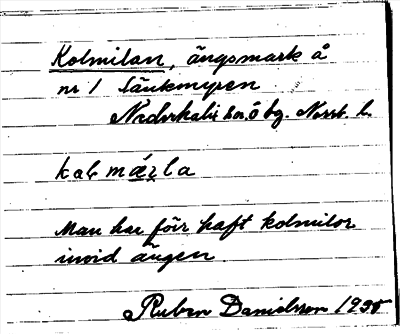 Kolmilan, ängsmark å
nr 1 Länkmyren
Nederkalix sn. Ö bg. Norrb. l.
Man har förr haft kolmilor
invid ängen
Ruben Danielsson 1935